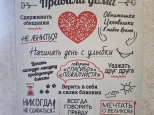 Правила дома
Сдерживать обещания
Обниматься
Целоваться
НЕ ЛЕНИТЬСЯ
Начинать день с улыбки
говорить
«СПАСИБО»
«ПОЖАЛУЙСТА»
Уважать друг друга
Верить в себя
и своих близких
НИКОГДА
НЕ СДАВАТЬСЯ
ВСЕГДА
ГОВОРИТЬ
ПРАВДУ
МЕЧТАТЬ
О ВЕЛИКОМ